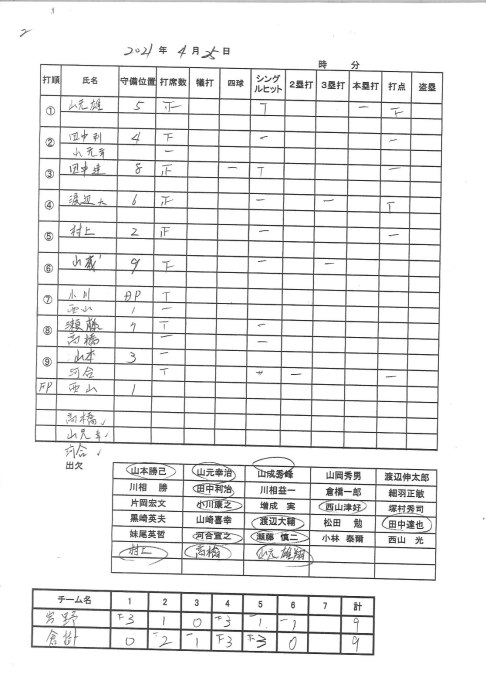 2021 年 4 月 25 日
時 分
打順 氏名 守備位置 打席数 犠打 四球 シングルヒット 2塁打 3塁打 本塁打 打点 盗塁
① 山元雄 5 下 T 一 下
② 田中利 4 下 一 一
山元幸 一
③ 田中達 8 正 一 T 一
④ 渡辺大 6 下 一 一 T
⑤ 村上 2 正 一 一
⑥ 山成 9 下 一 一
⑦ 小川 DP T
西山 1 一
⑧ 瀬藤 7 T 一
高橋 一 一
⑨ 山本 3 一
河合 T 一 一
FP 西山 1
高橋
山元幸
河合
出欠
山本勝己 山元幸治 山成秀峰 山岡秀男 渡辺伸太郎
川相 勝 田中利治 川相益一 倉橋一郎 細羽正敏
片岡宏文 小川康之 増成 実 西山津好 塚村秀司
黒崎英夫 山崎喜幸 渡辺大輔 松田 勉 田中達也
妹尾英哲 河合宣之 瀬藤 慎二 小林 泰爾 西山 光
村上 高橋 山元 雄翔
チーム名 1 2 3 4 5 6 7 計
吉野 3 1 0 3 1 1 9
倉掛 0 2 1 3 3 0 9